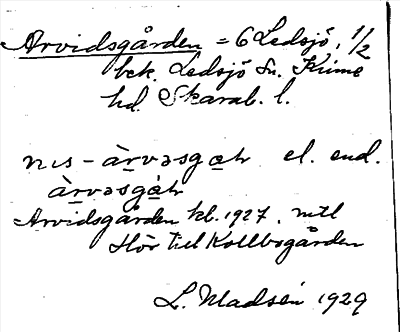 Arvidsgården = 6 Ledsjö, 1/2
bek. Ledsjö sn. Kinne
hd. Skarab. l.
nis-àrvəsgaɳ el. end.
àrvəsgàɳ
Arvidsgården kl. 1927. mtl
Hör till Kollbogården
L. Madsén 1929